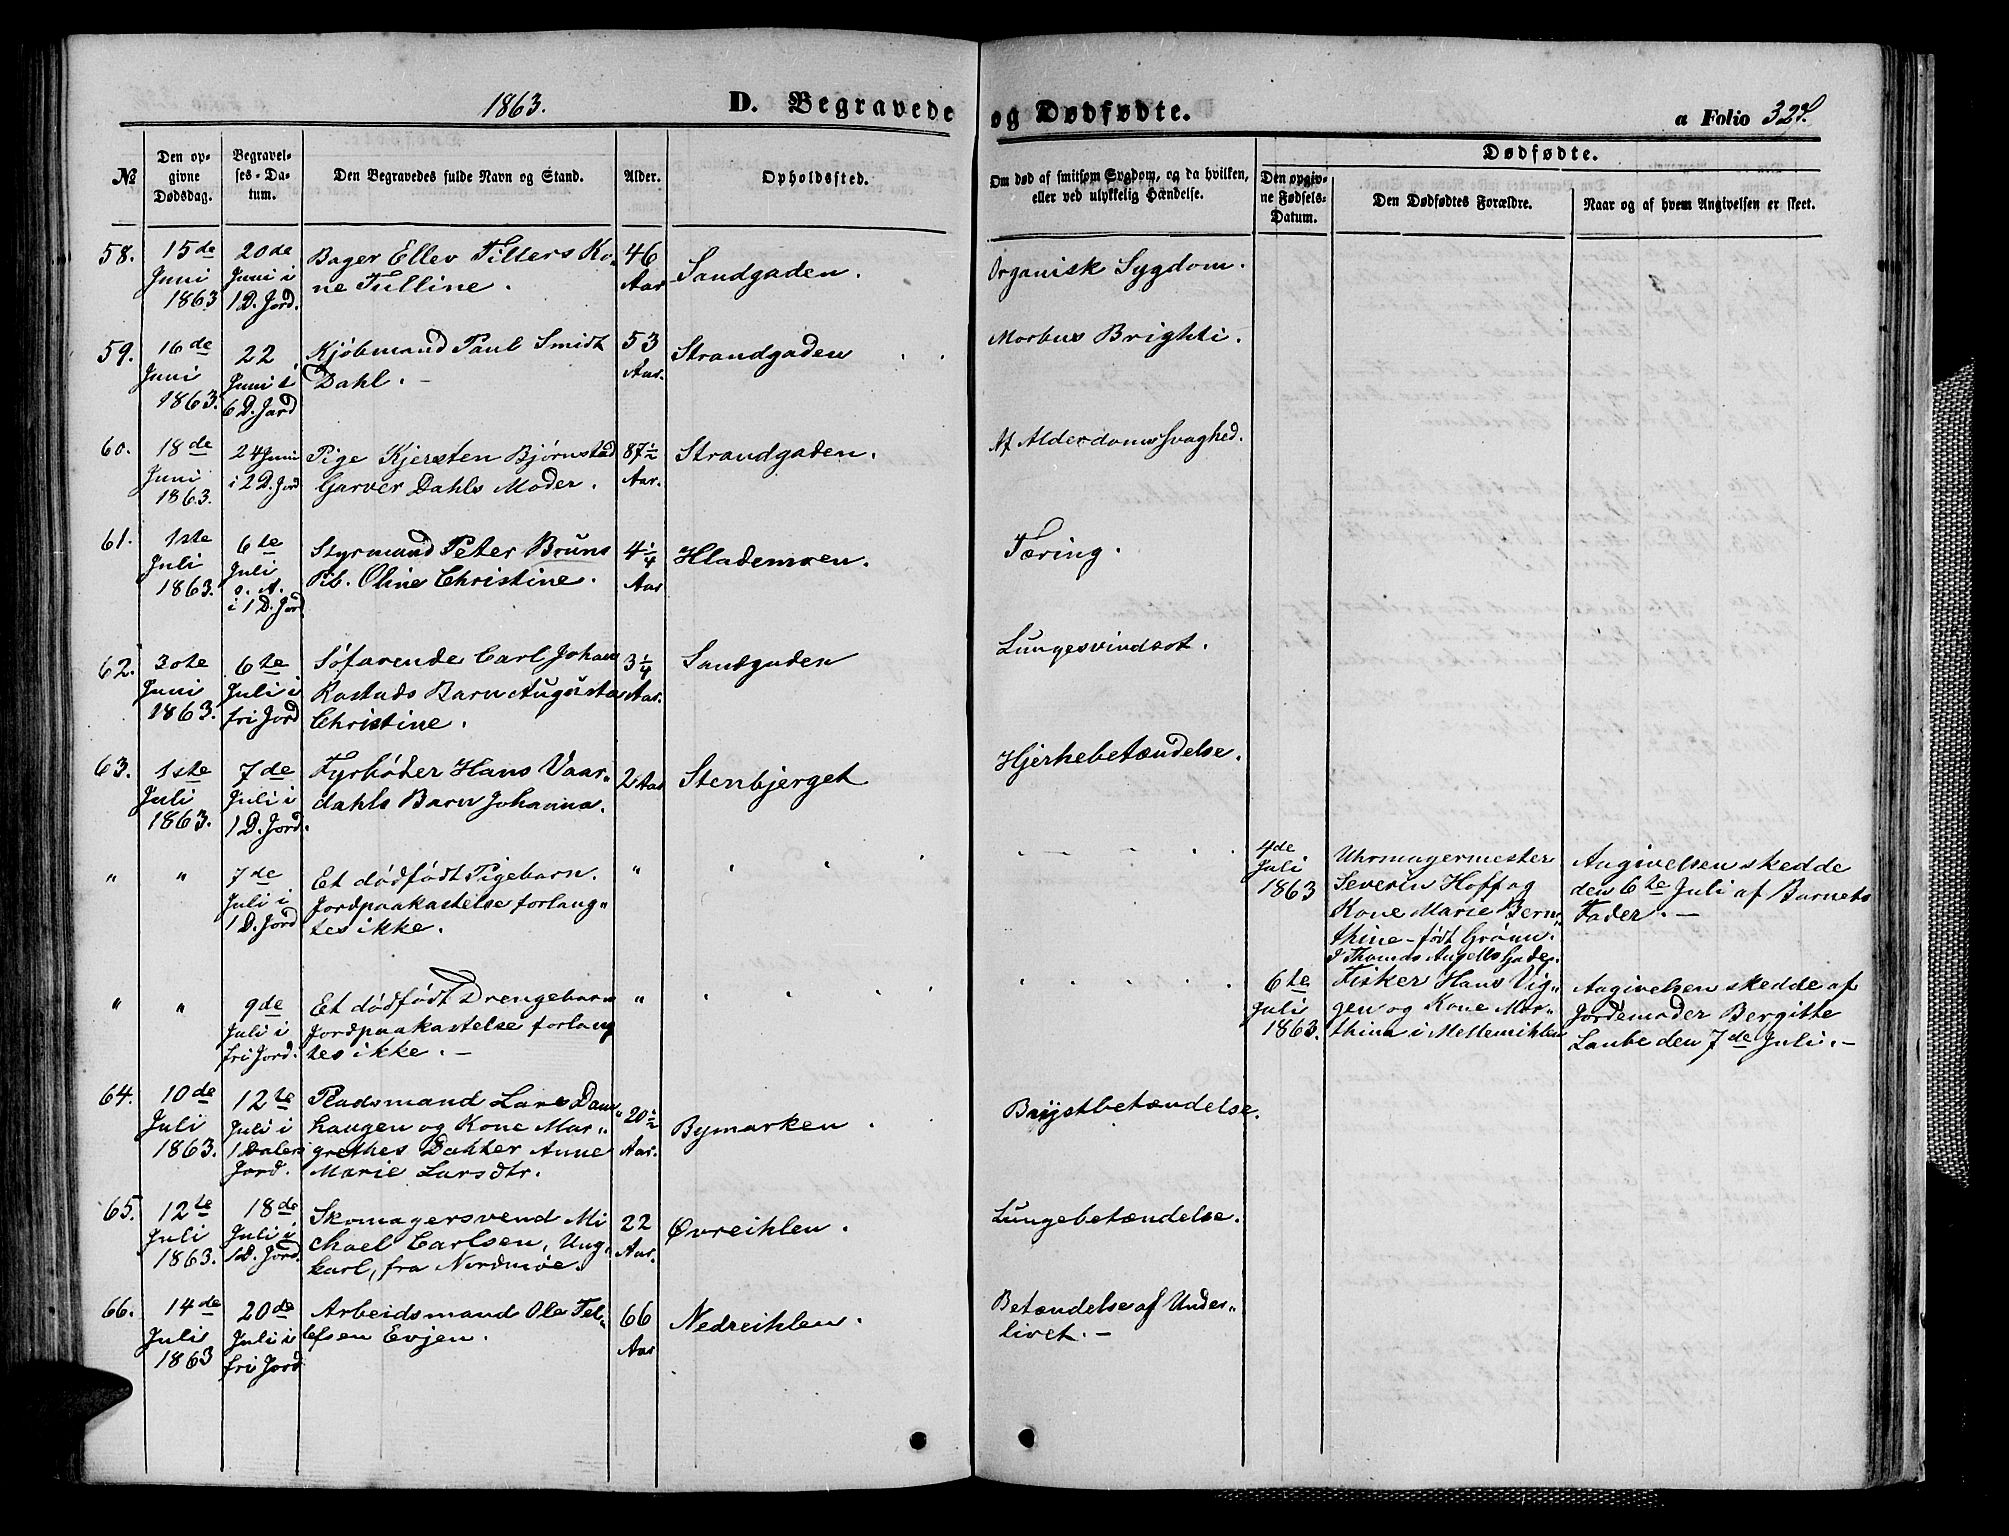 1863.
D. Begravede og Dødfødte.
a Folio 327.
№
Den opgivne Dødsdag.
Begravelses-Datum.
Den Begravedes fulde Navn og Stand.
Alder.
Opholdssted.
Om død af smitsom Sygdom, og da hvilken, eller ved ulykkelig Hændelse.
Dødfødte.
Den opgivne Fødsels-Datum.
Den Dødfødtes Forældre.
Naar og af hvem Angivelsen er skeet.
58.
15de
Juni
1863
20de
Juni i
1 D. Jord.
Bager Ellev Tillers Ko-
ne Julline.
46
Aar
Sandgaden.
Organisk Sygdom.
59.
16de
Juni
1863.
22
Juni i
6 D. Jord
Kjøbmand Paul Smidt
Dahl. -
53
Aar.
Strandgaden
Morbus Brighti.
60.
18de
Juni
1863.
24 Juni
i 2 D. Jord
Pige Kjersten Bjørnstad
Garver Dahls Moder.
87½
Aar.
Strandgaden.
Af Alderdomssvaghed.
61.
1ste
Juli
1863.
6te
Juli
o. A.
i 1 D. Jord
Styrmand Peter Bruns
Pib. Oline Christine.
4¼
Aar
Hlademoen.
Tæring.
62.
30te
Juni
1863.
6te
Juli i
fri Jord
Søfarende Carl Johan
Rostads Barn Augusta
Christine.
3¼
Aar.
Sandgaden
Lungesvindsot.
63.
1ste
Juli
1863.
7de
Juli i
1 D. Jord.
Fyrbøder Hans Vaar-
dahls Barn Johanna.
2 Aar
Stenbjerget
Hjernebetændelse.
" "
7de
Juli i
1 D. Jord
Et dødfødt Pigebarn.
Jordpaakastelse forlang-
tes ikke.
"
4de
Juli
1863
Uhrmagermester
Severin Hoff og
Kone Marie Bern-
thine - født Grønn.
I Thomas Angells Gade.
Angivelsen skedde
den 6te Juli af Barnets
Fader. -
" "
9de
Juli i
fri Jord.
Et dødfødt Drengebarn
Jordpaakastelse forlang
tes ikke. -
"
6te
Juli
1863.
Fisker Hans Vig-
gen og Kone Mar-
thina i Mellemihlen
Angivelsen skedde af
Jordemoder Bergitte
Laube den 7de Juli. -
64.
10de
Juli
1863.
12te
Juli i
1 Dalers
Jord.
Pladsmand Lars Dam-
haugen og Kone Mar-
grethes Datter Anne
Marie Larsdtr.
20½
Aar.
Bymarken.
Brystbetændelse.
65.
12te
Juli
1863.
18de
Juli i
1 D. Jord.
Skomagersvend Mi
chael Carlsen, Ung-
karl, fra Nordmøe.
22
Aar.
Øvreihlen.
Lungebetændelse.
66.
14de
Juli
1863
20de
Juli i
fri Jord
Arbeidsmand Ole Tel-
lefsen Evjen.
66
Aar
Nedreihlen.
Betændelse af Under-
livet. -